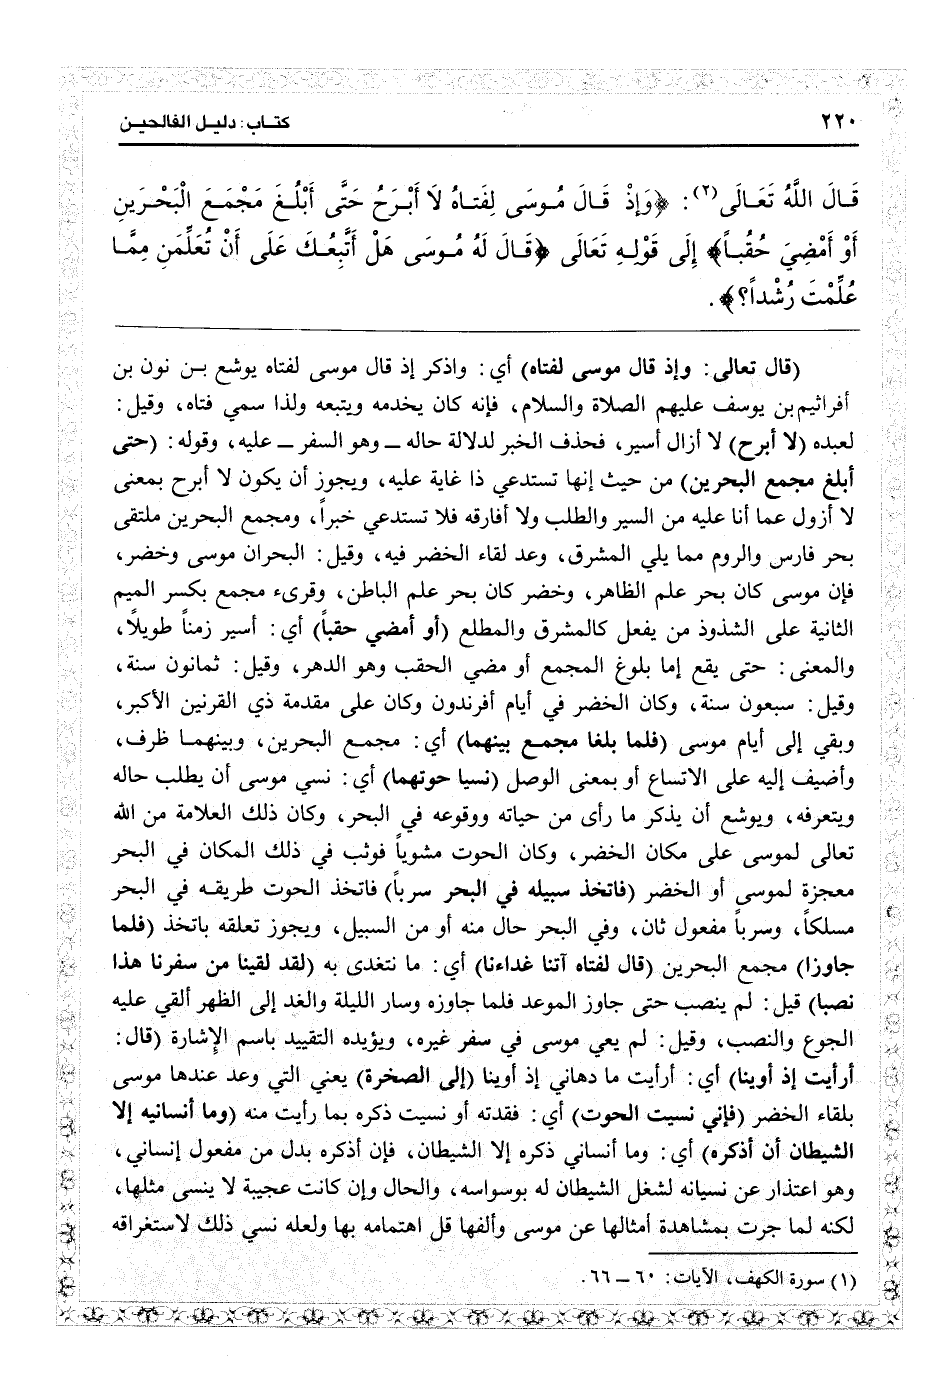 ٢٢٠
كتـاب: دليـل الفالحيـن
قَـالَ اللَّهُ تَعَـالَى(٢): ﴿وَإِذْ قَـالَ مُـوسَى لِفَتـاهُ لَا أَبْـرَحُ حَتَّى أَبْلُـغَ مَجْمَـعَ الْبَحْـرَينِ
أَوْ أَمْضِيَ حُقُبـاً﴾ إِلَى قَوْلِـهِ تَعَالَى ﴿قَـالَ لَهُ مُـوسَى هَلْ أَتَّبِعُـكَ عَلَى أَنْ تُعَلِّمَنِ مِمَّـا
عُلِّمْتَ رُشْداً؟﴾.
(قال تعالى: وإذ قال موسى لفتاه) أي: واذكر إذ قال موسى لفتاه يوشع بـن نون بن
أفراثيم بن يوسف عليهم الصلاة والسلام، فإنه كان يخدمه ويتبعه ولذا سمي فتاه، وقيل:
لعبده (لا أبرح) لا أزال أسير، فحذف الخبر لدلالة حاله ـ وهو السفر ـ عليه، وقوله: (حتى
أبلغ مجمع البحرين) من حيث إنها تستدعي ذا غاية عليه، ويجوز أن يكون لا أبرح بمعنى
لا أزول عما أنا عليه من السير والطلب ولا أفارقه فلا تستدعي خبراً، ومجمع البحرين ملتقى
بحر فارس والروم مما يلي المشرق، وعد لقاء الخضر فيه، وقيل: البحران موسى وخضر،
فإن موسى كان بحر علم الظاهر، وخضر كان بحر علم الباطن، وقرىء مجمع بكسر الميم
الثانية على الشذوذ من يفعل كالمشرق والمطلع (أو أمضي حقباً) أي: أسير زمناً طويلاً،
والمعنى: حتى يقع إما بلوغ المجمع أو مضي الحقب وهو الدهر، وقيل: ثمانون سنة،
وقيل: سبعون سنة، وكان الخضر في أيام أفرندون وكان على مقدمة ذي القرنين الأكبر،
وبقي إلى أيام موسى (فلما بلغا مجمـع بينهما) أي: مجمـع البحرين، وبينهمـا ظرف،
وأضيف إليه على الاتساع أو بمعنى الوصل (نسيا حوتهما) أي: نسي موسى أن يطلب حاله
ويتعرفه، ويوشع أن يذكر ما رأى من حياته ووقوعه في البحر، وكان ذلك العلامة من الله
تعالى لموسى على مكان الخضر، وكان الحوت مشوياً فوثب في ذلك المكان في البحر
معجزة لموسى أو الخضر (فاتخذ سبيله في البحر سرباً) فاتخذ الحوت طريقـه في البحر
مسلكاً، وسرباً مفعول ثان، وفي البحر حال منه أو من السبيل، ويجوز تعلقه باتخذ (فلما
جاوزا) مجمع البحرين (قال لفتاه آتنا غداءنا) أي: ما نتغدى به (لقد لقينا من سفرنا هذا
نصبا) قيل: لم ينصب حتى جاوز الموعد فلما جاوزه وسار الليلة والغد إلى الظهر ألقي عليه
الجوع والنصب، وقيل: لم يعي موسى في سفر غيره، ويؤيده التقييد باسم الإشارة (قال:
أرأيت إذ أوينا) أي: أرأيت ما دهاني إذ أوينا (إلى الصخرة) يعني التي وعد عندها موسى
بلقاء الخضر (فإني نسيت الحوت) أي: فقدته أو نسيت ذكره بما رأيت منه (وما أنسانيه إلا
الشيطان أن أذكره) أي: وما أنساني ذكره إلا الشيطان، فإن أذكره بدل من مفعول إنساني،
وهو اعتذار عن نسيانه لشغل الشيطان له بوسواسه، والحال وإن كانت عجيبة لا ينسى مثلها،
لكنه لما جرت بمشاهدة أمثالها عن موسى وألفها قل اهتمامه بها ولعله نسي ذلك لاستغراقه
(١) سورة الكهف، الآيات: ٦٠ ـ ٦٦.